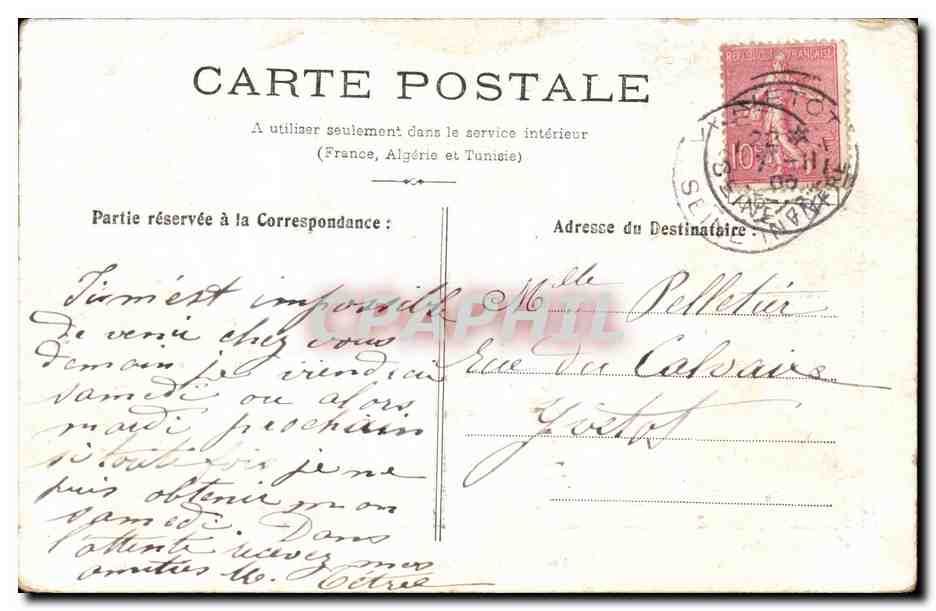 CARTE POSTALE
A utiliser seulement dans le service intérieur
(France, Algérie et Tunisie)
Partie réservée à la Correspondance :
Adresse du Destinataire :
REPUBLIQUE FRANÇAISE
10
YVETOT
SEINE-INFRE
CPAPHIL
m'est impossible
de venir chez vous
demain je viendrai
samedi ou alors
mardi prochain
si toute fois je ne
puis obtenir mon
samedi. Dans
l'attente recevez mes
amitiés M.
Mlle Pelletier
Rue du Calvaire
Yvetot